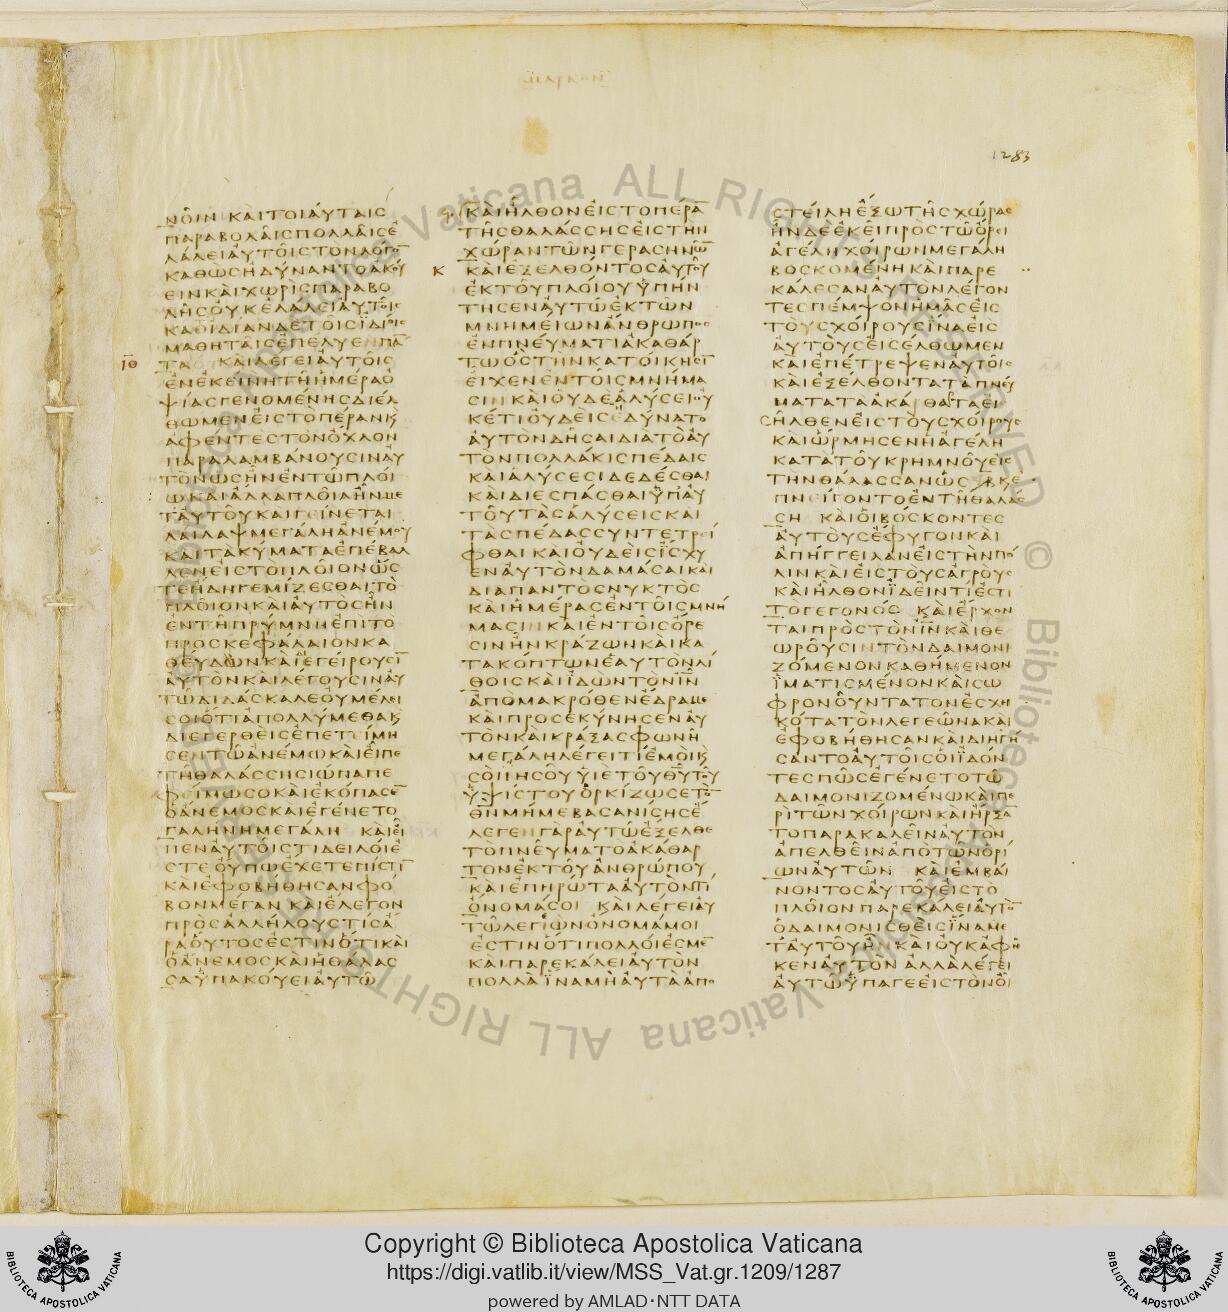 ΜΑΡΚΟΝ
1283
ΝΟΙΝ ΚΑΙ ΤΟΙΑΥΤΑΙΣ
ΠΑΡΑΒΟΛΑΙΣ ΠΟΛΛΑΙΣ Ε
ΛΑΛΕΙ ΑΥΤΟΙΣ ΤΟΝ ΛΟΓΟ
ΚΑΘΩΣ ΗΔΥΝΑΝΤΟ ΑΚΟΥ
ΕΙΝ ΚΑΙ ΧΩΡΙΣ ΠΑΡΑΒΟ
ΛΗΣ ΟΥΚ ΕΛΑΛΕΙ ΑΥΤΟΙΣ
ΚΑΤ ΙΔΙΑΝ ΔΕ ΤΟΙΣ ΙΔΙΟΙΣ
ΜΑΘΗΤΑΙΣ ΕΠΕΛΥΕΝ ΠΑ
ΙΘ
ΤΑ ΚΑΙ ΛΕΓΕΙ ΑΥΤΟΙΣ
ΕΝ ΕΚΕΙΝΗ ΤΗ ΗΜΕΡΑ Ο
ΨΙΑΣ ΓΕΝΟΜΕΝΗΣ ΔΙΕΛ
ΘΩΜΕΝ ΕΙΣ ΤΟ ΠΕΡΑΝ Κ
ΑΦΕΝΤΕΣ ΤΟΝ ΟΧΛΟΝ
ΠΑΡΑΛΑΜΒΑΝΟΥΣΙΝ ΑΥ
ΤΟΝ ΩΣ ΗΝ ΕΝ ΤΩ ΠΛΟΙ
Ω ΚΑΙ ΑΛΛΑ ΠΛΟΙΑ ΗΝ ΜΕ
Τ ΑΥΤΟΥ ΚΑΙ ΓΕΙΝΕΤΑΙ
ΛΑΙΛΑΨ ΜΕΓΑΛΗ ΑΝΕΜΟΥ
ΚΑΙ ΤΑ ΚΥΜΑΤΑ ΕΠΕΒΑΛ
ΛΕΝ ΕΙΣ ΤΟ ΠΛΟΙΟΝ ΩΣ
ΤΕ ΗΔΗ ΓΕΜΙΖΕΣΘΑΙ ΤΟ
ΠΛΟΙΟΝ ΚΑΙ ΑΥΤΟΣ ΗΝ
ΕΝ ΤΗ ΠΡΥΜΝΗ ΕΠΙ ΤΟ
ΠΡΟΣΚΕΦΑΛΑΙΟΝ ΚΑ
ΘΕΥΔΩΝ ΚΑΙ ΕΓΕΙΡΟΥΣΙ
ΑΥΤΟΝ ΚΑΙ ΛΕΓΟΥΣΙΝ ΑΥ
ΤΩ ΔΙΔΑΣΚΑΛΕ ΟΥ ΜΕΛΕΙ
ΣΟΙ ΟΤΙ ΑΠΟΛΛΥΜΕΘΑ Κ
ΔΙΕΓΕΡΘΕΙΣ ΕΠΕΤΕΙΜΗ
ΣΕΝ ΤΩ ΑΝΕΜΩ ΚΑΙ ΕΙΠΕ
ΤΗ ΘΑΛΑΣΣΗ ΣΙΩΠΑ ΠΕ
ΦΕΙΜΩΣΟ ΚΑΙ ΕΚΟΠΑΣΕ
Ο ΑΝΕΜΟΣ ΚΑΙ ΕΓΕΝΕΤΟ
ΓΑΛΗΝΗ ΜΕΓΑΛΗ ΚΑΙ ΕΙ
ΠΕΝ ΑΥΤΟΙΣ ΤΙ ΔΕΙΛΟΙ Ε
ΣΤΕ ΟΥΠΩ ΕΧΕΤΕ ΠΙΣΤΙ
ΚΑΙ ΕΦΟΒΗΘΗΣΑΝ ΦΟ
ΒΟΝ ΜΕΓΑΝ ΚΑΙ ΕΛΕΓΟΝ
ΠΡΟΣ ΑΛΛΗΛΟΥΣ ΤΙΣ Α
ΡΑ ΟΥΤΟΣ ΕΣΤΙΝ ΟΤΙ ΚΑΙ
Ο ΑΝΕΜΟΣ ΚΑΙ Η ΘΑΛΑΣ
ΣΑ ΥΠΑΚΟΥΕΙ ΑΥΤΩ
ΚΑΙ ΗΛΘΟΝ ΕΙΣ ΤΟ ΠΕΡΑ
ΤΗΣ ΘΑΛΑΣΣΗΣ ΕΙΣ ΤΗΝ
ΧΩΡΑΝ ΤΩΝ ΓΕΡΑΣΗΝΩ
Κ
ΚΑΙ ΕΞΕΛΘΟΝΤΟΣ ΑΥΤΟΥ
ΕΚ ΤΟΥ ΠΛΟΙΟΥ ΥΠΗΝ
ΤΗΣΕΝ ΑΥΤΩ ΕΚ ΤΩΝ
ΜΝΗΜΕΙΩΝ ΑΝΘΡΩΠΟΣ
ΕΝ ΠΝΕΥΜΑΤΙ ΑΚΑΘΑΡ
ΤΩ ΟΣ ΤΗΝ ΚΑΤΟΙΚΗΣΙ
ΕΙΧΕΝ ΕΝ ΤΟΙΣ ΜΝΗΜΑ
ΣΙΝ ΚΑΙ ΟΥΔΕ ΑΛΥΣΕΙ ΟΥ
ΚΕΤΙ ΟΥΔΕΙΣ ΕΔΥΝΑΤΟ
ΑΥΤΟΝ ΔΗΣΑΙ ΔΙΑ ΤΟ ΑΥ
ΤΟΝ ΠΟΛΛΑΚΙΣ ΠΕΔΑΙΣ
ΚΑΙ ΑΛΥΣΕΣΙ ΔΕΔΕΣΘΑΙ
ΚΑΙ ΔΙΕΣΠΑΣΘΑΙ ΥΠ ΑΥ
ΤΟΥ ΤΑΣ ΑΛΥΣΕΙΣ ΚΑΙ
ΤΑΣ ΠΕΔΑΣ ΣΥΝΤΕΤΡΕΙ
ΦΘΑΙ ΚΑΙ ΟΥΔΕΙΣ ΙΣΧΥ
ΕΝ ΑΥΤΟΝ ΔΑΜΑΣΑΙ ΚΑΙ
ΔΙΑ ΠΑΝΤΟΣ ΝΥΚΤΟΣ
ΚΑΙ ΗΜΕΡΑΣ ΕΝ ΤΟΙΣ ΜΝΗ
ΜΑΣΙΝ ΚΑΙ ΕΝ ΤΟΙΣ ΟΡΕ
ΣΙΝ ΗΝ ΚΡΑΖΩΝ ΚΑΙ ΚΑ
ΤΑΚΟΠΤΩΝ ΕΑΥΤΟΝ ΛΙ
ΘΟΙΣ ΚΑΙ ΙΔΩΝ ΤΟΝ ΙΝ
ΑΠΟ ΜΑΚΡΟΘΕΝ ΕΔΡΑΜΕ
ΚΑΙ ΠΡΟΣΕΚΥΝΗΣΕΝ ΑΥ
ΤΟΝ ΚΑΙ ΚΡΑΞΑΣ ΦΩΝΗ
ΜΕΓΑΛΗ ΛΕΓΕΙ ΤΙ ΕΜΟΙ Κ
ΣΟΙ ΙΗΣΟΥ ΥΙΕ ΤΟΥ ΘΥ ΤΟΥ
ΥΨΙΣΤΟΥ ΟΡΚΙΖΩ ΣΕ ΤΟ
ΘΝ ΜΗ ΜΕ ΒΑΣΑΝΙΣΗΣ Ε
ΛΕΓΕΝ ΓΑΡ ΑΥΤΩ ΕΞΕΛΘΕ
ΤΟ ΠΝΕΥΜΑ ΤΟ ΑΚΑΘΑΡ
ΤΟΝ ΕΚ ΤΟΥ ΑΝΘΡΩΠΟΥ
ΚΑΙ ΕΠΗΡΩΤΑ ΑΥΤΟΝ ΤΙ
ΟΝΟΜΑ ΣΟΙ ΚΑΙ ΛΕΓΕΙ ΑΥ
ΤΩ ΛΕΓΙΩΝ ΟΝΟΜΑ ΜΟΙ
ΕΣΤΙΝ ΟΤΙ ΠΟΛΛΟΙ ΕΣΜΕ
ΚΑΙ ΠΑΡΕΚΑΛΕΙ ΑΥΤΟΝ
ΠΟΛΛΑ ΙΝΑ ΜΗ ΑΥΤΑ ΑΠΟ
ΣΤΕΙΛΗ ΕΞΩ ΤΗΣ ΧΩΡΑΣ
ΗΝ ΔΕ ΕΚΕΙ ΠΡΟΣ ΤΩ ΟΡΕΙ
ΑΓΕΛΗ ΧΟΙΡΩΝ ΜΕΓΑΛΗ
ΒΟΣΚΟΜΕΝΗ ΚΑΙ ΠΑΡΕ
ΚΑΛΕΣΑΝ ΑΥΤΟΝ ΛΕΓΟΝ
ΤΕΣ ΠΕΜΨΟΝ ΗΜΑΣ ΕΙΣ
ΤΟΥΣ ΧΟΙΡΟΥΣ ΙΝΑ ΕΙΣ
ΑΥΤΟΥΣ ΕΙΣΕΛΘΩΜΕΝ
ΚΑΙ ΕΠΕΤΡΕΨΕΝ ΑΥΤΟΙΣ
ΚΑΙ ΕΞΕΛΘΟΝΤΑ ΤΑ ΠΝΕΥ
ΜΑΤΑ ΤΑ ΑΚΑΘΑΡΤΑ ΕΙ
ΣΗΛΘΕΝ ΕΙΣ ΤΟΥΣ ΧΟΙΡΟΥΣ
ΚΑΙ ΩΡΜΗΣΕΝ Η ΑΓΕΛΗ
ΚΑΤΑ ΤΟΥ ΚΡΗΜΝΟΥ ΕΙΣ
ΤΗΝ ΘΑΛΑΣΣΑΝ ΩΣ ΚΕ
ΠΝΕΙΓΟΝΤΟ ΕΝ ΤΗ ΘΑΛΑΣ
ΣΗ ΚΑΙ ΟΙ ΒΟΣΚΟΝΤΕΣ
ΑΥΤΟΥΣ ΕΦΥΓΟΝ ΚΑΙ
ΑΠΗΓΓΕΙΛΑΝ ΕΙΣ ΤΗΝ ΠΟ
ΛΙΝ ΚΑΙ ΕΙΣ ΤΟΥΣ ΑΓΡΟΥΣ
ΚΑΙ ΗΛΘΟΝ ΙΔΕΙΝ ΤΙ ΕΣΤΙ
ΤΟ ΓΕΓΟΝΟΣ ΚΑΙ ΕΡΧΟΝ
ΤΑΙ ΠΡΟΣ ΤΟΝ ΙΝ ΚΑΙ ΘΕ
ΩΡΟΥΣΙΝ ΤΟΝ ΔΑΙΜΟΝΙ
ΖΟΜΕΝΟΝ ΚΑΘΗΜΕΝΟΝ
ΙΜΑΤΙΣΜΕΝΟΝ ΚΑΙ ΣΩ
ΦΡΟΝΟΥΝΤΑ ΤΟΝ ΕΣΧΗ
ΚΟΤΑ ΤΟΝ ΛΕΓΕΩΝΑ ΚΑΙ
ΕΦΟΒΗΘΗΣΑΝ ΚΑΙ ΔΙΗΓΗ
ΣΑΝΤΟ ΑΥΤΟΙΣ ΟΙ ΙΔΟΝ
ΤΕΣ ΠΩΣ ΕΓΕΝΕΤΟ ΤΩ
ΔΑΙΜΟΝΙΖΟΜΕΝΩ ΚΑΙ ΠΕ
ΡΙ ΤΩΝ ΧΟΙΡΩΝ ΚΑΙ ΗΡΞΑ
ΤΟ ΠΑΡΑΚΑΛΕΙΝ ΑΥΤΟΝ
ΑΠΕΛΘΕΙΝ ΑΠΟ ΤΩΝ ΟΡΙ
ΩΝ ΑΥΤΩΝ ΚΑΙ ΕΜΒΑΙ
ΝΟΝΤΟΣ ΑΥΤΟΥ ΕΙΣ ΤΟ
ΠΛΟΙΟΝ ΠΑΡΕΚΑΛΕΙ ΑΥΤΟ
Ο ΔΑΙΜΟΝΙΣΘΕΙΣ ΙΝΑ ΜΕ
Τ ΑΥΤΟΥ Η ΚΑΙ ΟΥΚ ΑΦΗ
ΚΕΝ ΑΥΤΟΝ ΑΛΛΑ ΛΕΓΕΙ
ΑΥΤΩ ΥΠΑΓΕ ΕΙΣ ΤΟΝ ΟΙ
Copyright © Biblioteca Apostolica Vaticana
https://digi.vatlib.it/view/MSS_Vat.gr.1209/1287
powered by AMLAD·NTT DATA
BIBLIOTECA APOSTOLICA VATICANA
BIBLIOTECA APOSTOLICA VATICANA